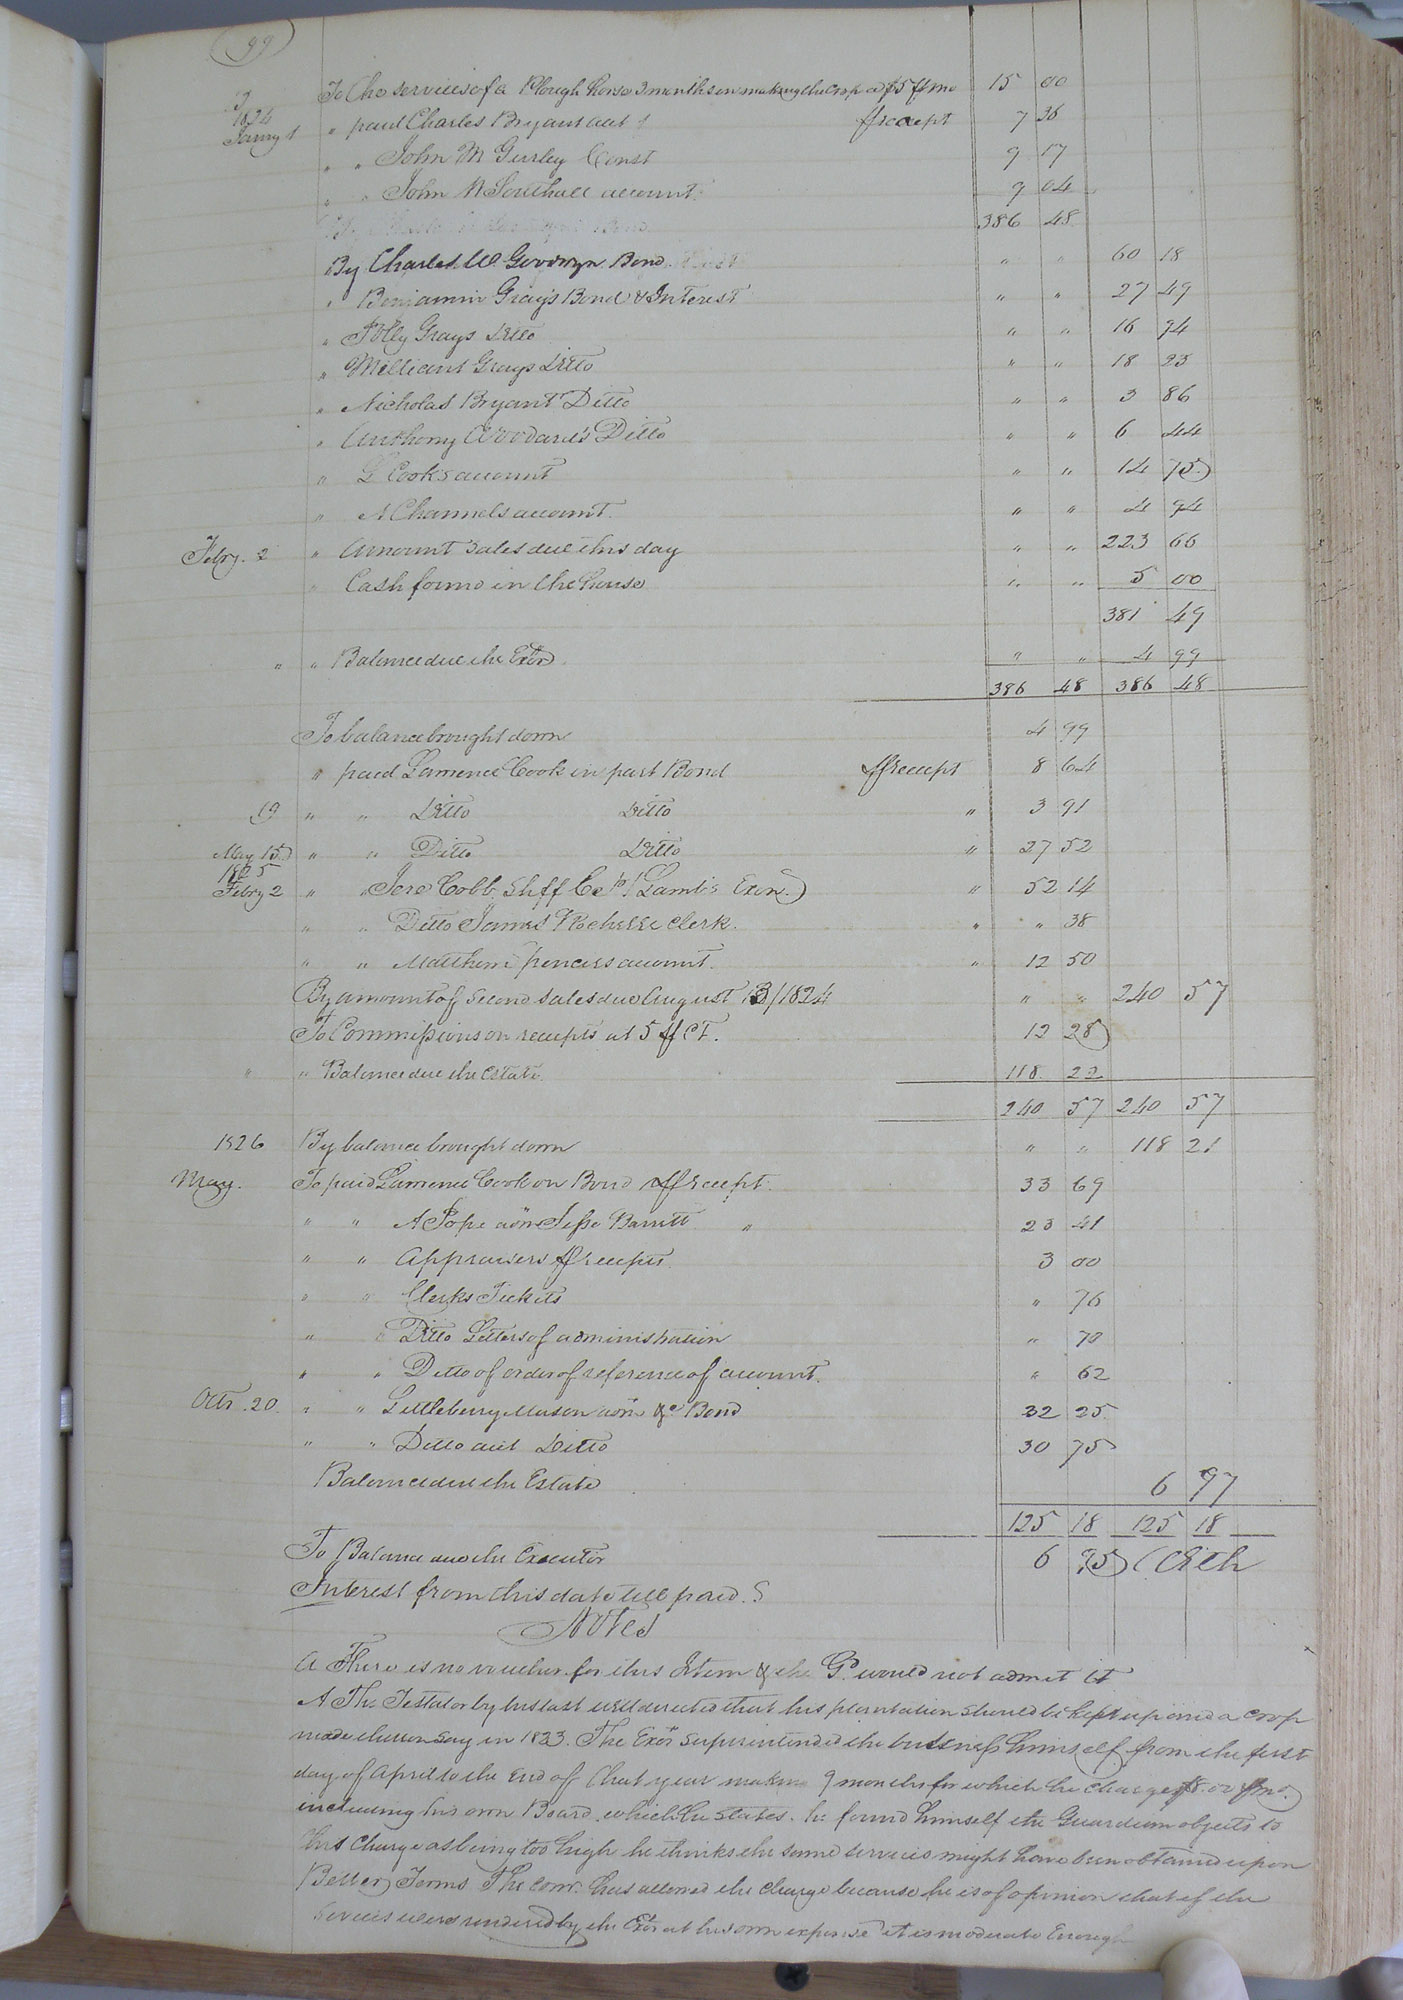 99
To the services of a Plough horse 3 months in making the crop @ $5 pr mo 15 00
1824
Janry 1 " paid Charles Bryant acct pr receipt 7 36
" " John M Gurley Const 9 17
" " John N Southall account 9 04
386 48
By Charles W Goodwyn Bond " " 60 18
" Benjamin Grays Bond & Interest " " 27 49
" Polly Grays Ditto " " 16 94
" Millicent Grays Ditto " " 18 23
" Nicholas Bryant Ditto " " 3 86
" Anthony Woodard's Ditto " " 6 44
" L Cooks account " " 14 75
" A Channels account " " 4 94
Febry. 2 " Amount Sales due this day " " 223 66
" Cash found in the house " " 5 00
381 49
" " Balance due the Exor " " 4 99
386 48 386 48
To balance brought down 4 99
" paid Lawrence Cook in part Bond pr receipt 8 64
19 " " Ditto Ditto " 3 91
May 15 " " Ditto Ditto " 27 52
1825
Febry 2 " " Jere Cobb Shff Lamb's Exor. " 52 14
" " Ditto James Rochelle Clerk. " " 38
" " Matthew Spencers account. " 12 50
By amount of Second Sales due August 13/1824 " " 240 57
To Commissions on receipts at 5 pr Ct. 12 28
" " Balance due the Estate 118 22
240 57 240 57
1826 By balance brought down " " 118 21
May. To paid Lawrence Cook on Bond pr receipt 33 69
" " A Pope adm Jesse Barritt " 23 41
" " Appraisers pr receipts 3 00
" " Clerks Tickets " 76
" " Ditto Letters of administration " 70
" " Ditto of order of reference of account. " 62
Octr. 20. " " Littleberry Mason adm &c Bond 32 25
" " Ditto acct Ditto 30 75
Balance due the Estate 6 97
125 18 125 18
To Balance due the Executor 6 95 (With
Interest from this date till paid.
Notes
A There is no voucher for this Item & the Gd. would not admit it
A The Testator by his last will directed that his plantation should be kept up and a crop
made thereon say in 1823. The Exor Superintended the business himself from the first
day of April to the End of that year making 9 months for which he charges $8.02 pr mo.
including his own Board which he States he found himself the Guardian objects to
this Charge as being too high he thinks the same services might have been obtained upon
Better Terms The Comr. has allowed the Charge because he is of opinion that if the
Services were rendered by the Exor at his own expense it is moderate Enough